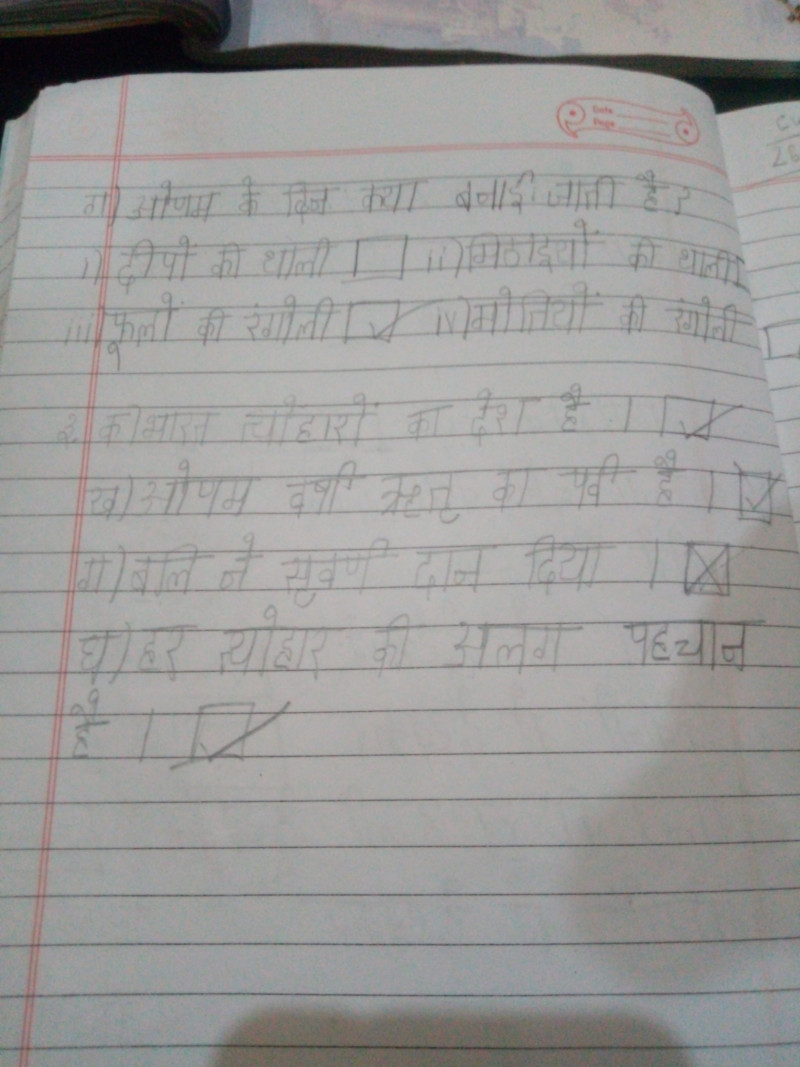 Date
Page
ग) ओणम के दिन क्या बनाई जाती है?
i) दीपों की थाली ii) मिठाइयों की थाली
iii) फूलों की रंगोली ✓ iv) मोतियों की रंगोली
२. क) भारत त्योहारों का देश है । ✓
ख) ओणम वर्षा ऋतु का पर्व है । ✓
ग) बलि ने सुवर्ण दान दिया । ✗
घ) हर त्योहार की अलग पहचान
है । ✓